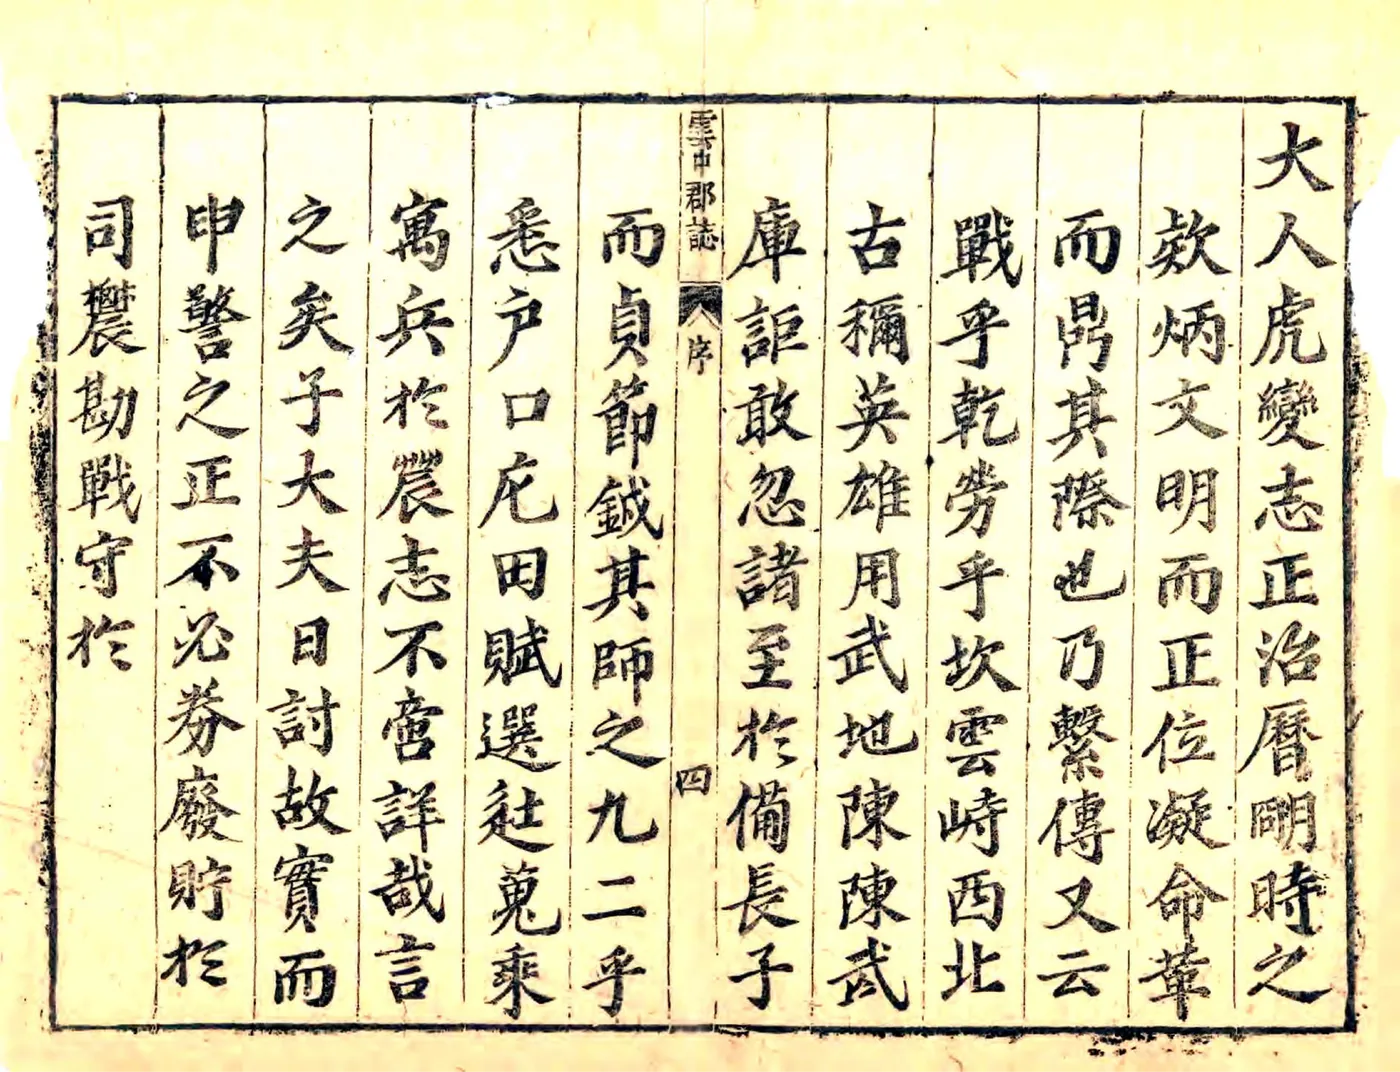 大人虎變志正治曆明時之
欵炳文明而正位凝命革
而鼎其際也乃繫傳又云
戰乎乾勞乎坎雲峙西北
古稱英雄用武地陳陳武
庫詎敢忽諸至於備長子
雲中郡誌
序
四
而貞節鉞其師之九二乎
悉户口庀田賦選徒蒐乘
寓兵於農志不啻詳哉言
之矣子大夫日討故實而
申警之正不必券廢貯於
司農勘戰守於